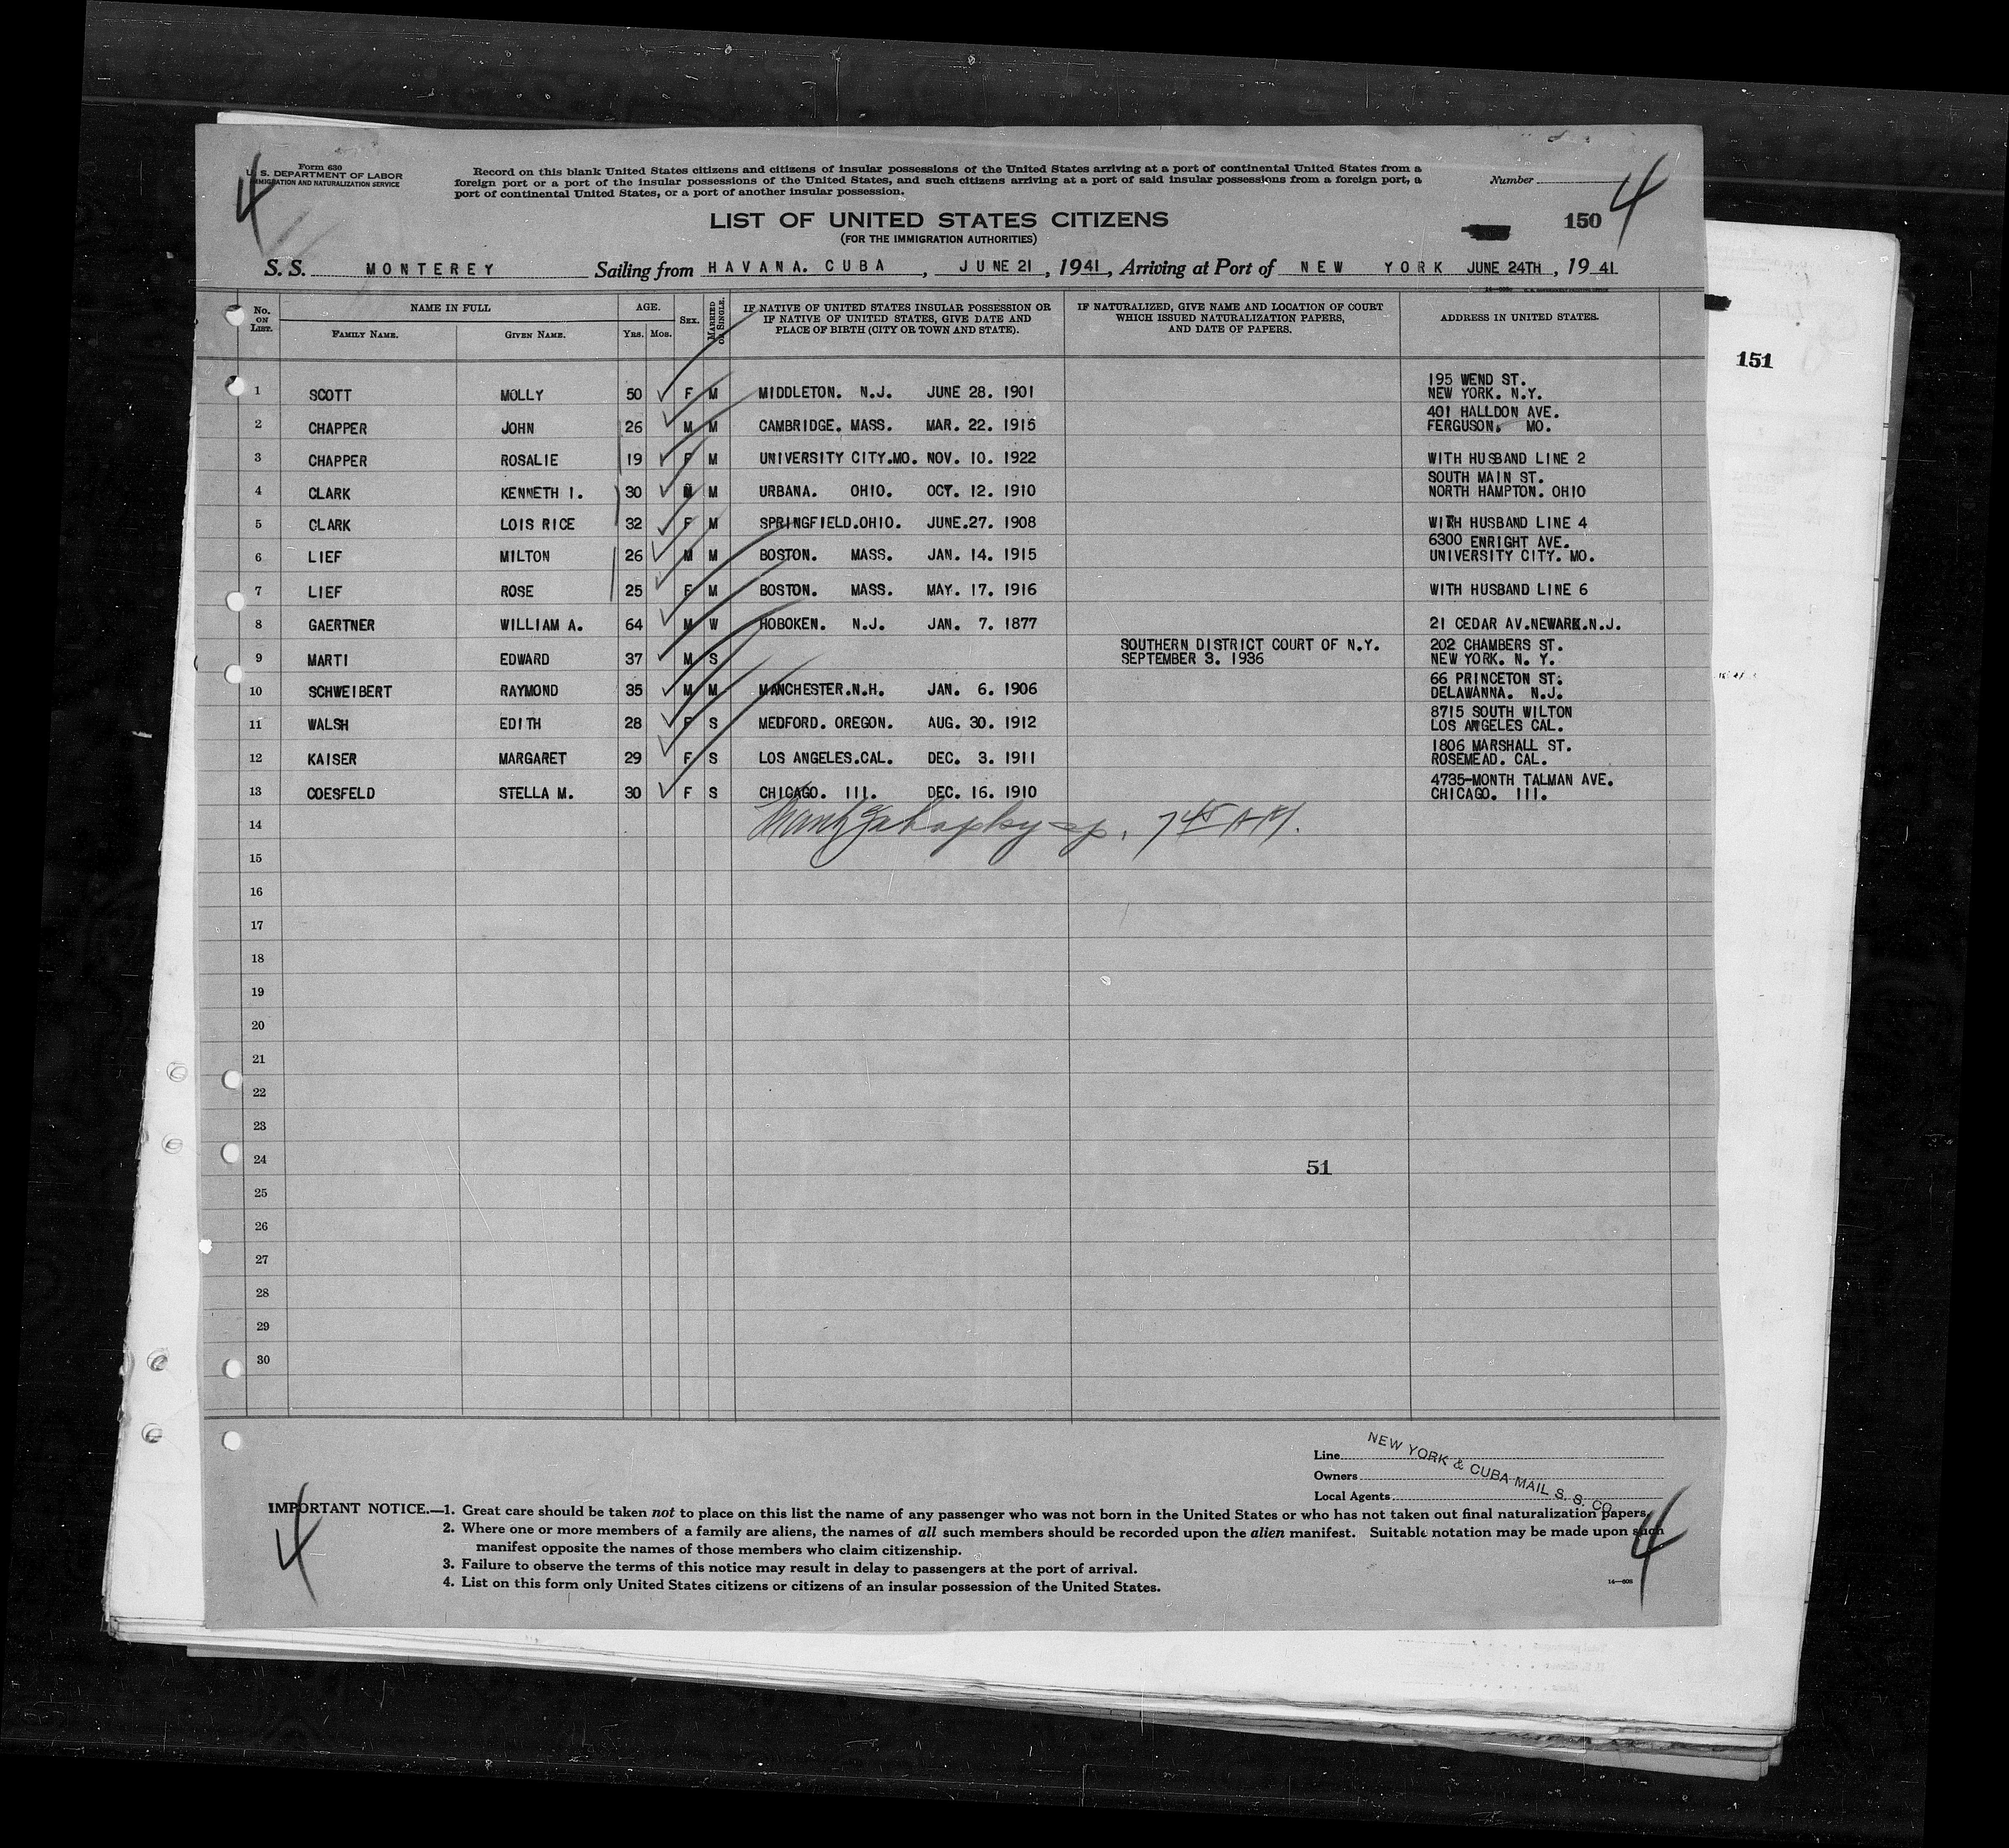 Form 630
U. S. DEPARTMENT OF LABOR
IMMIGRATION AND NATURALIZATION SERVICE
4
Record on this blank United States citizens and citizens of insular possessions of the United States arriving at a port of continental United States from a
foreign port or a port of the insular possessions of the United States, and such citizens arriving at a port of said insular possessions from a foreign port, a
port of continental United States, or a port of another insular possession.
Number
4
LIST OF UNITED STATES CITIZENS
(FOR THE IMMIGRATION AUTHORITIES)
150
S. S. MONTEREY Sailing from HAVANA. CUBA, JUNE 21, 1941, Arriving at Port of NEW YORK JUNE 24TH, 1941
No. ON LIST. NAME IN FULL FAMILY NAME. GIVEN NAME. AGE. Yrs. Mos. SEX. MARRIED OR SINGLE.
IF NATIVE OF UNITED STATES INSULAR POSSESSION OR
IF NATIVE OF UNITED STATES, GIVE DATE AND
PLACE OF BIRTH (CITY OR TOWN AND STATE).
IF NATURALIZED, GIVE NAME AND LOCATION OF COURT
WHICH ISSUED NATURALIZATION PAPERS,
AND DATE OF PAPERS.
ADDRESS IN UNITED STATES.
151
1 SCOTT MOLLY 50 F M MIDDLETON. N.J. JUNE 28. 1901 195 WEND ST.
NEW YORK. N.Y.
2 CHAPPER JOHN 26 M M CAMBRIDGE. MASS. MAR. 22. 1915 401 HALLDON AVE.
FERGUSON. MO.
3 CHAPPER ROSALIE 19 F M UNIVERSITY CITY.MO. NOV. 10. 1922 WITH HUSBAND LINE 2
4 CLARK KENNETH I. 30 M M URBANA. OHIO. OCT. 12. 1910 SOUTH MAIN ST.
NORTH HAMPTON. OHIO
5 CLARK LOIS RICE 32 F M SPRINGFIELD.OHIO. JUNE.27. 1908 WITH HUSBAND LINE 4
6 LIEF MILTON 26 M M BOSTON. MASS. JAN. 14. 1915 6300 ENRIGHT AVE.
UNIVERSITY CITY. MO.
7 LIEF ROSE 25 F M BOSTON. MASS. MAY. 17. 1916 WITH HUSBAND LINE 6
8 GAERTNER WILLIAM A. 64 M W HOBOKEN. N.J. JAN. 7. 1877 21 CEDAR AV.NEWARK.N.J.
9 MARTI EDWARD 37 M S SOUTHERN DISTRICT COURT OF N.Y.
SEPTEMBER 3. 1936
202 CHAMBERS ST.
NEW YORK. N. Y.
10 SCHWEIBERT RAYMOND 35 M M MANCHESTER.N.H. JAN. 6. 1906 66 PRINCETON ST.
DELAWANNA. N.J.
11 WALSH EDITH 28 F S MEDFORD. OREGON. AUG. 30. 1912 8715 SOUTH WILTON
LOS ANGELES CAL.
12 KAISER MARGARET 29 F S LOS ANGELES.CAL. DEC. 3. 1911 1806 MARSHALL ST.
ROSEMEAD. CAL.
13 COESFELD STELLA M. 30 F S CHICAGO. III. DEC. 16. 1910 4735-MONTH TALMAN AVE.
CHICAGO. III.
14
7 45 AM.
15
16
17
18
19
20
21
22
23
24
51
25
26
27
28
29
30
Line
Owners
Local Agents
NEW YORK & CUBA MAIL S. S. CO.
IMPORTANT NOTICE.—1. Great care should be taken not to place on this list the name of any passenger who was not born in the United States or who has not taken out final naturalization papers.
2. Where one or more members of a family are aliens, the names of all such members should be recorded upon the alien manifest. Suitable notation may be made upon such
manifest opposite the names of those members who claim citizenship.
3. Failure to observe the terms of this notice may result in delay to passengers at the port of arrival.
4. List on this form only United States citizens or citizens of an insular possession of the United States.
4
4